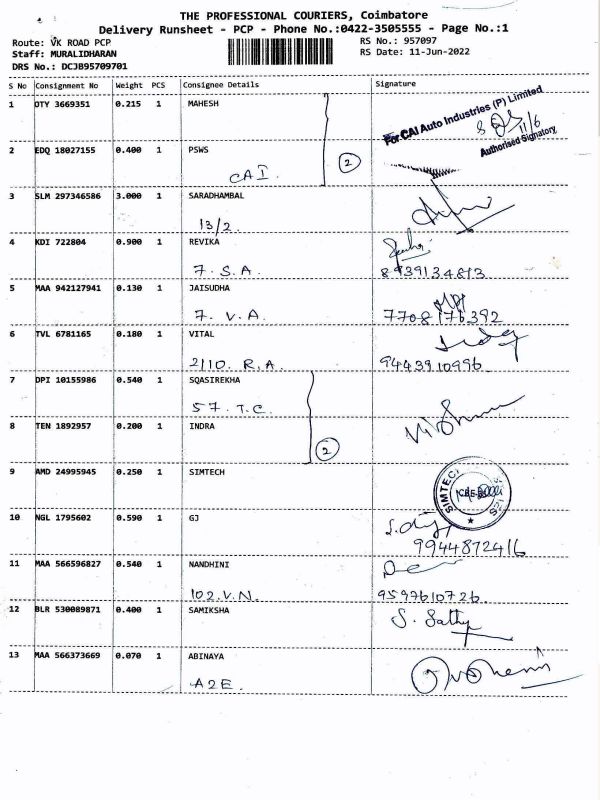 THE PROFESSIONAL COURIERS, Coimbatore
Delivery Runsheet - PCP - Phone No.:0422-3505555 - Page No.:1
Route: VK ROAD PCP
Staff: MURALIDHARAN
DRS No.: DCJB95709701
RS No.: 957097
RS Date: 11-Jun-2022
S No Consignment No Weight PCS Consignee Details Signature
1 OTY 3669351 0.215 1 MAHESH
For CAI Auto Industries (P) Limited
11/6
Authorised Signatory
2 EDQ 18027155 0.400 1 PSWS
CAI.
2
3 SLM 297346586 3.000 1 SARADHAMBAL
13/2.
4 KDI 722804 0.900 1 REVIKA
7. S.A. 8939134813
5 MAA 942127941 0.130 1 JAISUDHA
7. V.A. 7708176392
6 TVL 6781165 0.180 1 VITAL
2/10. R.A. 9443910996
7 DPI 10155986 0.540 1 SQASIREKHA
57. T.C.
8 TEN 1892957 0.200 1 INDRA
2
9 AMD 24995945 0.250 1 SIMTECH
SIMTEC
10 NGL 1795602 0.590 1 GJ
9944872416
11 MAA 566596827 0.540 1 NANDHINI
102.V.N. 9597610726
12 BLR 530089871 0.400 1 SAMIKSHA
S. Sathy
13 MAA 566373669 0.070 1 ABINAYA
A2E.